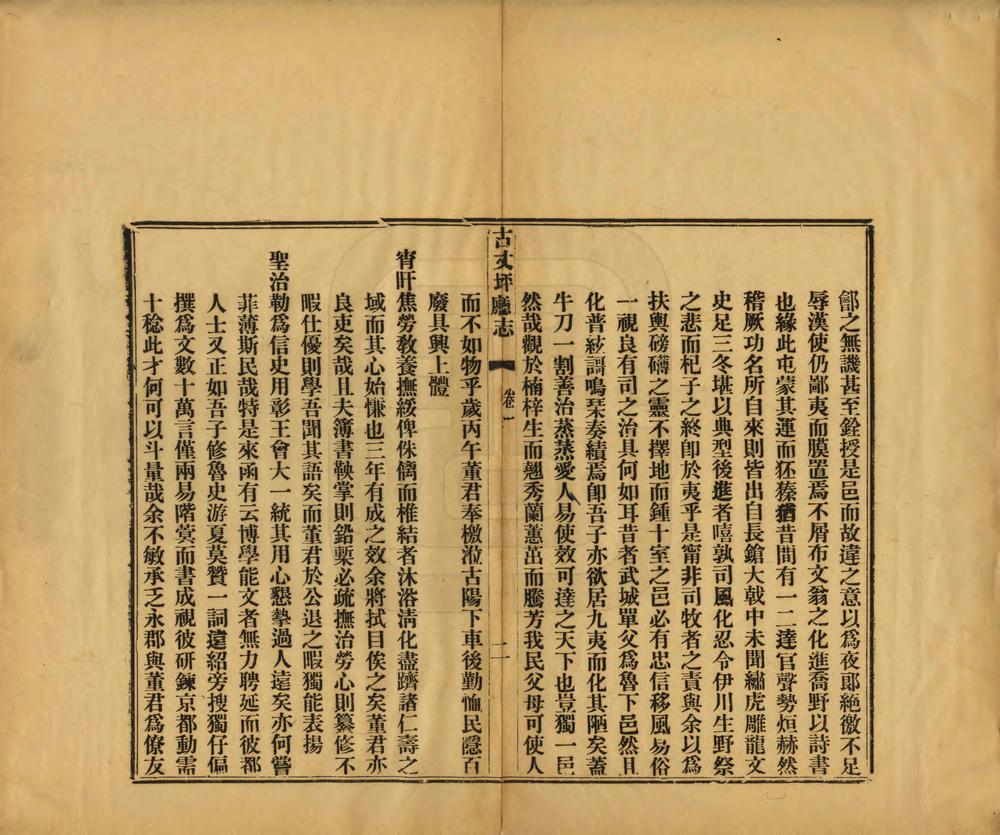 鄶之無譏甚至銓授是邑而故達之意以爲夜郞絶徼不足
辱漢使仍鄙夷而膜置焉不屑布文翁之化進喬野以詩書
也緣此屯蒙其運而狉獉猶昔間有一二達官聲勢烜赫然
稽厥功名所自來則皆出自長鎗大戟中未聞繡虎雕龍文
史足三冬堪以典型後進者嘻孰司風化忍令伊川生野祭
之悲而杞子之終卽於夷乎是甯非司牧者之責與余以爲
扶輿磅礴之靈不擇地而鍾十室之邑必有忠信移風易俗
一視良有司之治具何如耳昔者武城單父爲魯下邑然且
化普絃謌鳴琹奏績焉卽吾子亦欲居九夷而化其陋矣蓋
牛刀一割善治蒸蒸愛人易使效可達之天下也豈獨一邑
然哉觀於楠梓生而翹秀蘭蕙茁而騰芳我民父母可使人
古丈坪廳志
卷一
二
而不如物乎歲丙午董君奉檄涖古陽下車後勤恤民隱百
廢具興上體
宵旰焦勞敎養撫綏俾侏儷而椎結者沐浴淸化盡躋諸仁壽之
域而其心始慊也三年有成之效余將拭目俟之矣董君亦
良吏矣哉且夫簿書鞅掌則鉛槧必疏撫治勞心則纂修不
暇仕優則學吾聞其語矣而董君於公退之暇獨能表揚
聖治勒爲信史用彰王會大一統其用心懇摯過人遠矣亦何嘗
菲薄斯民哉特是來函有云博學能文者無力聘延而彼都
人士又正如吾子修魯史游夏莫贊一詞遠紹旁搜獨仔偏
撰爲文數十萬言僅兩易階蓂而書成視彼研鍊京都動需
十稔此才何可以斗量哉余不敏承乏永郡與董君爲僚友